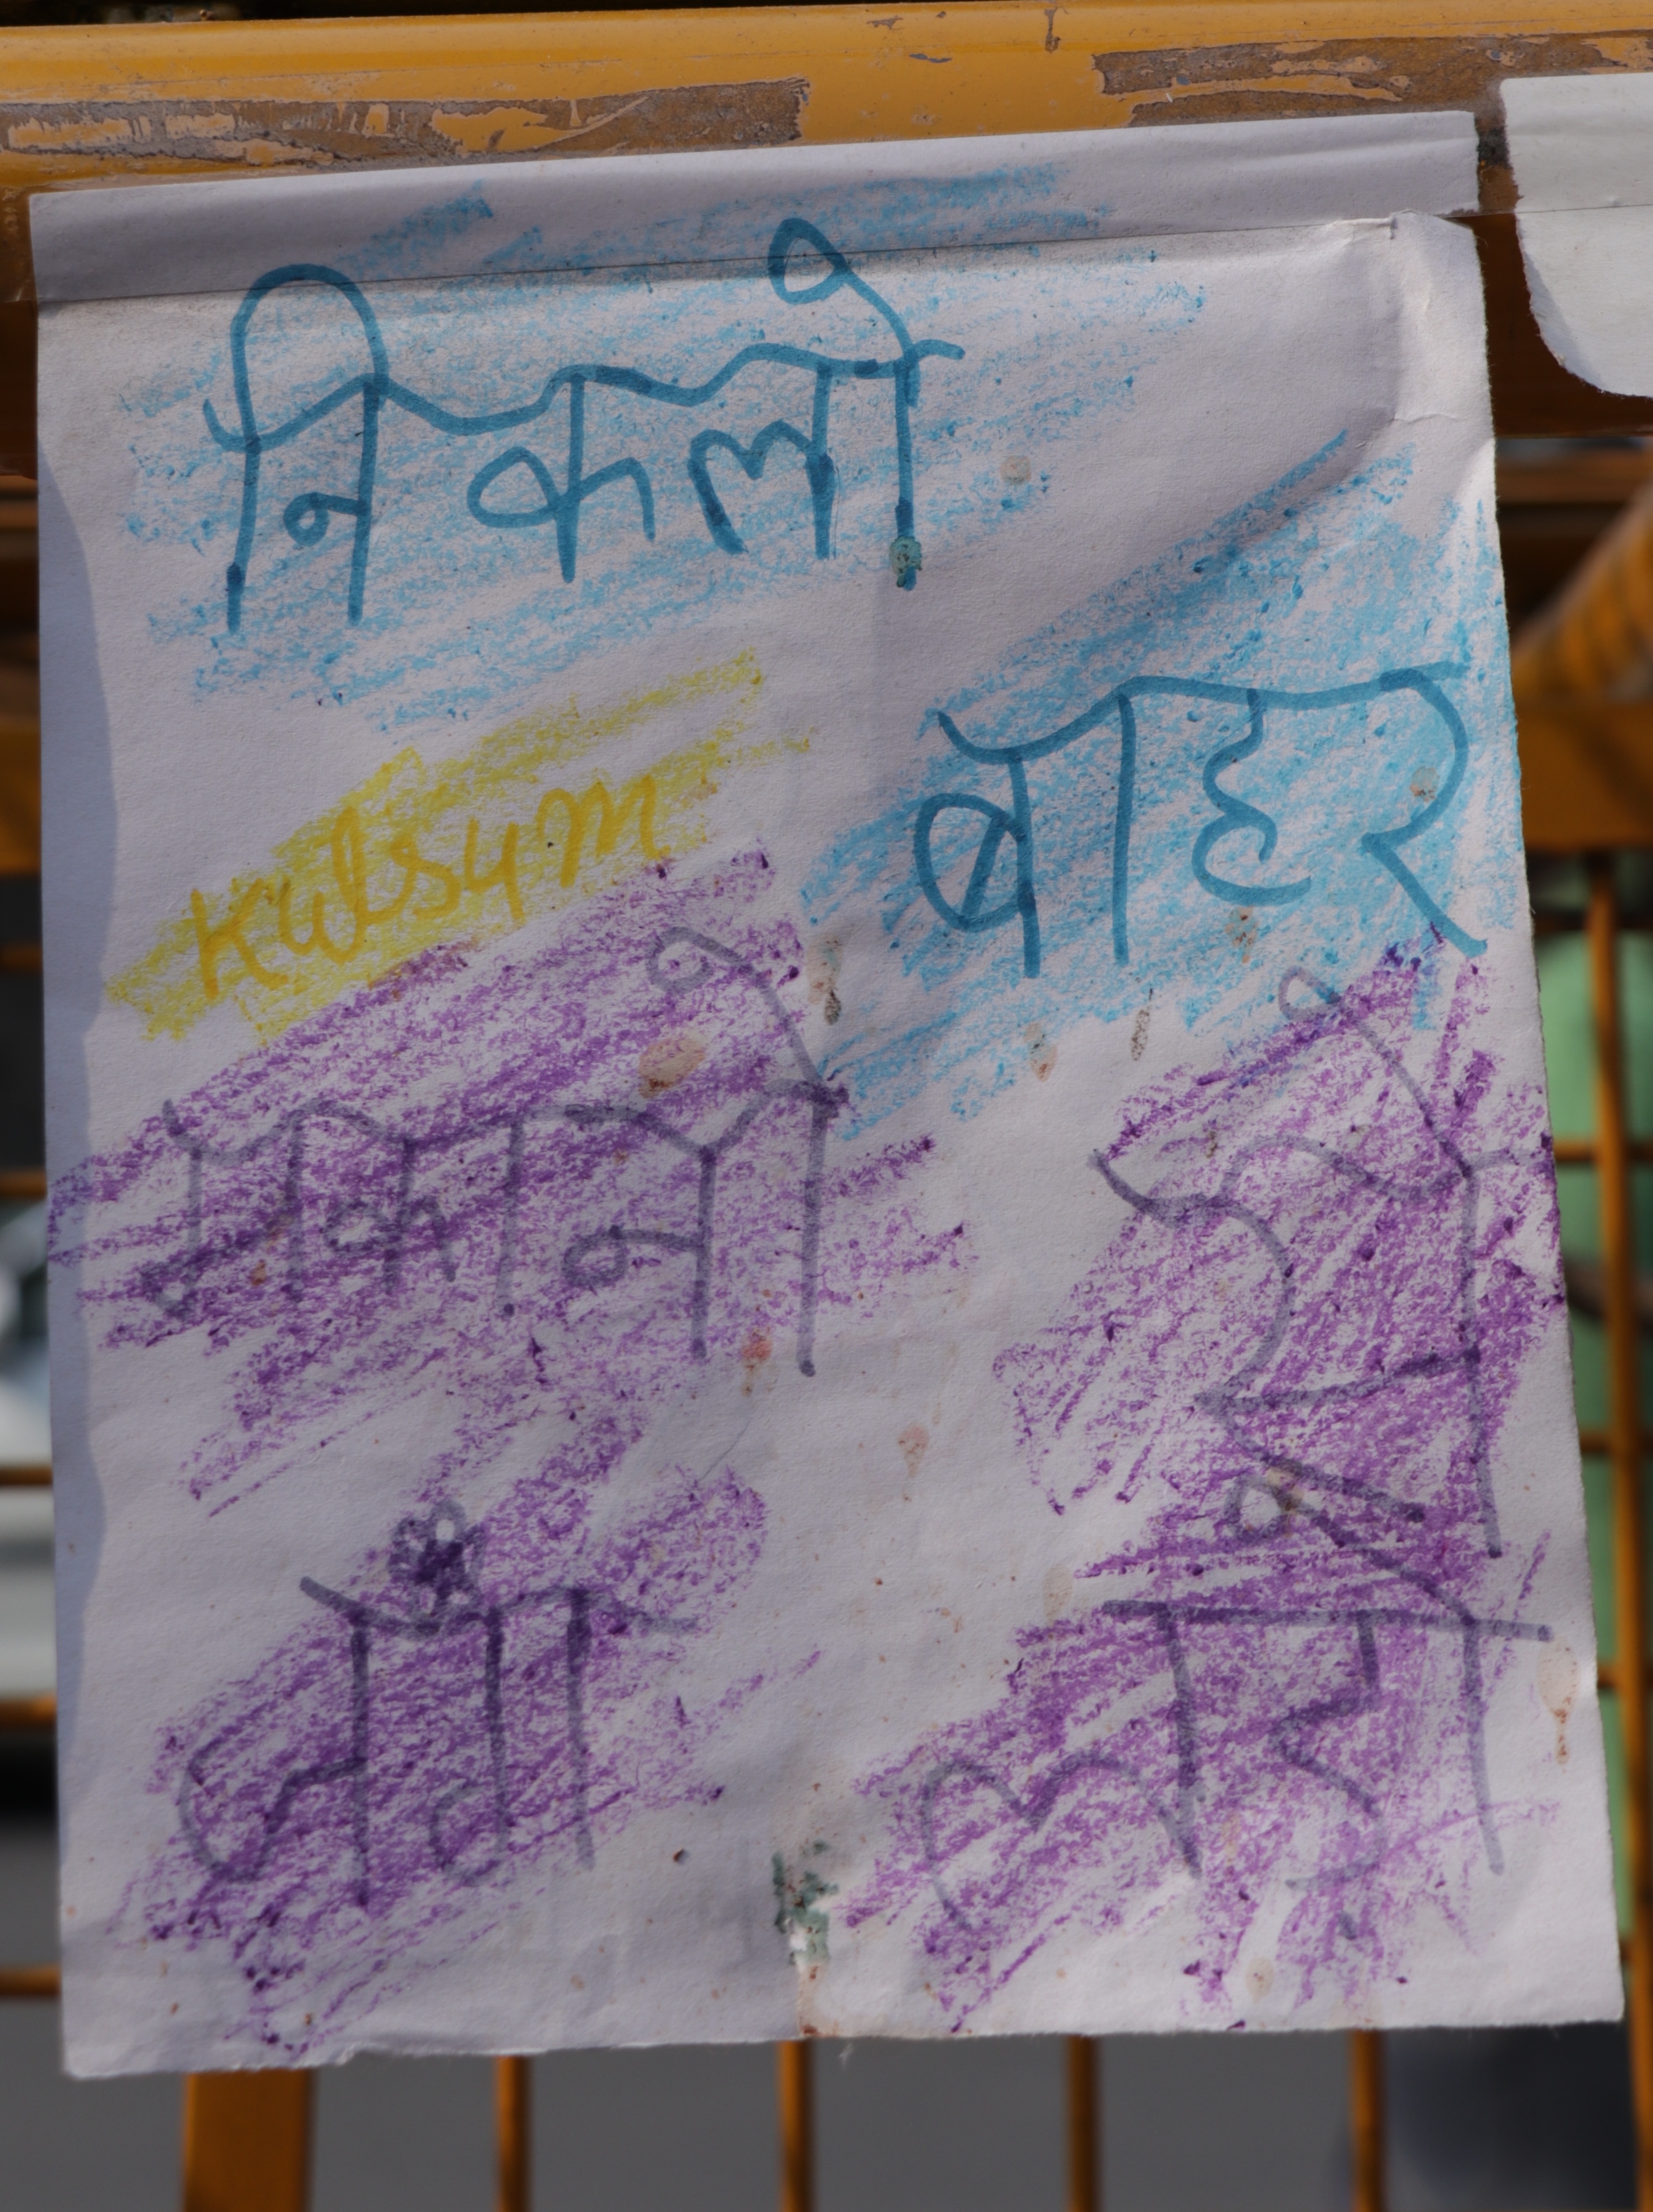 निकलो
बाहर
Kulsum
मकानो से
जंग लड़ो